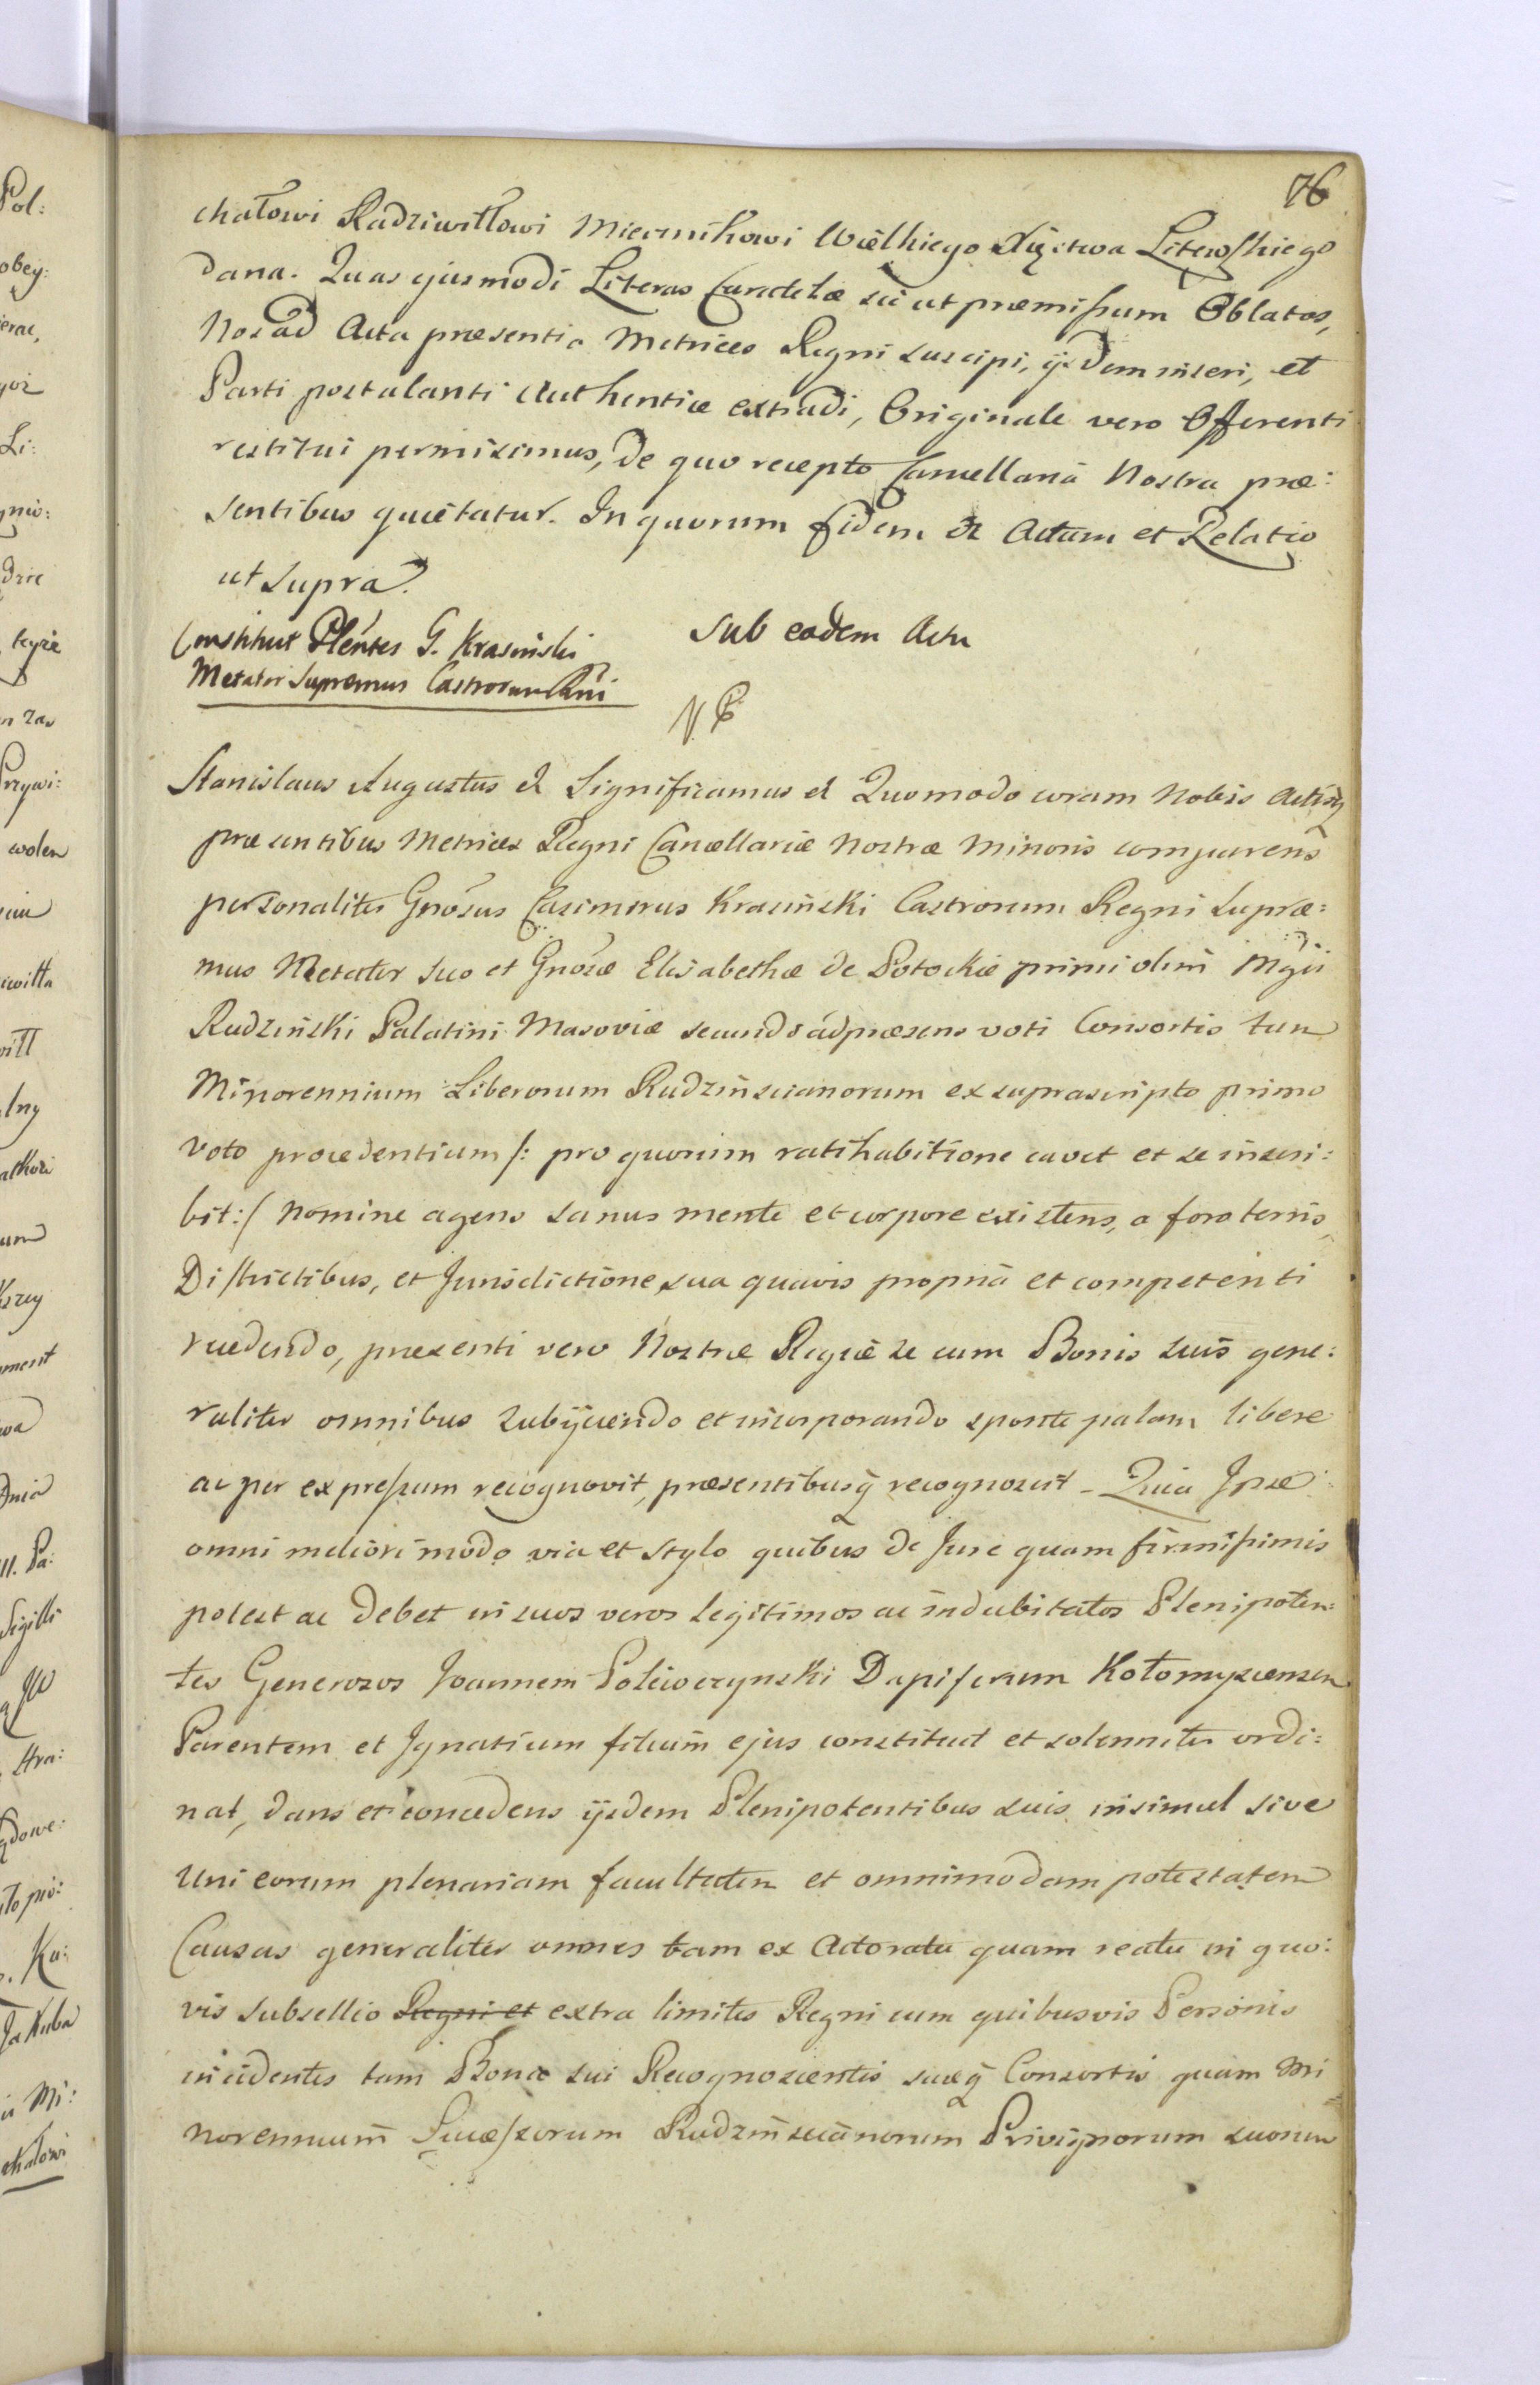 76
chałowi Radziwiłłowi Miecznikowi Wielkiego Xięstwa Litewskiego
dana. Quas ejusmodi Literas Curatelæ sic ut præmissum Oblatas,
Nos ad Acta præsentia Metrices Regni suscipi, ijsdem inseri, et
Parti postulanti Authentice extradi, Originale vero Offerenti
restitui permisimus, de quo recepto Cancellaria Nostra præ:
sentibus quietatur. In quorum fidem et Actum et Relatio
ut supra.
Sub eodem Actu
Constituit Plentes G. Krasinski
Metator Supremus Castrorum Rni
Stanislaus Augustus et Significamus et Quomodo coram Nobis Actisq
præsentibus Metrices Regni Cancellariæ Nostræ Minoris comparens
personaliter Gnosus Casimirus Krasiński Castrorum Regni Supræ:
mus Metator suo et Gnosæ Elisabethæ de Potockie primi olim Mgci
Rudziński Palatini Masoviæ secundo ad præsens voti Consortis tum
Minorennium Liberorum Rudzinscianorum ex suprascripto primo
voto procedentium /: pro quorum ratihabitione cavet et se inscri:
bit :/ nomine agens sanus mente et corpore existens, a foro terris,
Districtibus, et Jurisdictione sua quavis propria et competenti
recedendo, præsenti vero Nostræ Regiæ se cum Bonis suis gene:
raliter omnibus subijciendo et incorporando sponte palam libere
ac per expressum recognovit, præsentibusq recognoscit – Quia Ipse
omni meliori modo via et stylo quibus de Jure quam firmissimis
potest ac debet in suos veros legitimos ac indubitatos Plenipoten:
tes Generosos Joannem Poleworzynski Dapiferum Kołomyscensem
Parentem et Ignatium filium ejus constituit et solenniter ordi:
nat, dans et concedens ijsdem Plenipotentibus suis insimul sive
uni eorum plenariam facultatem et omnimodam potestatem
Causas generaliter omnes tam ex Actoratu quam reatu in quo:
vis subsellio Regni et extra limites Regni cum quibusvis Personis
incidentes tam Bona sui Recognoscentis suæq Consortis quam Mi
norennium Successorum Rudzinscianorum Privignorum suorum